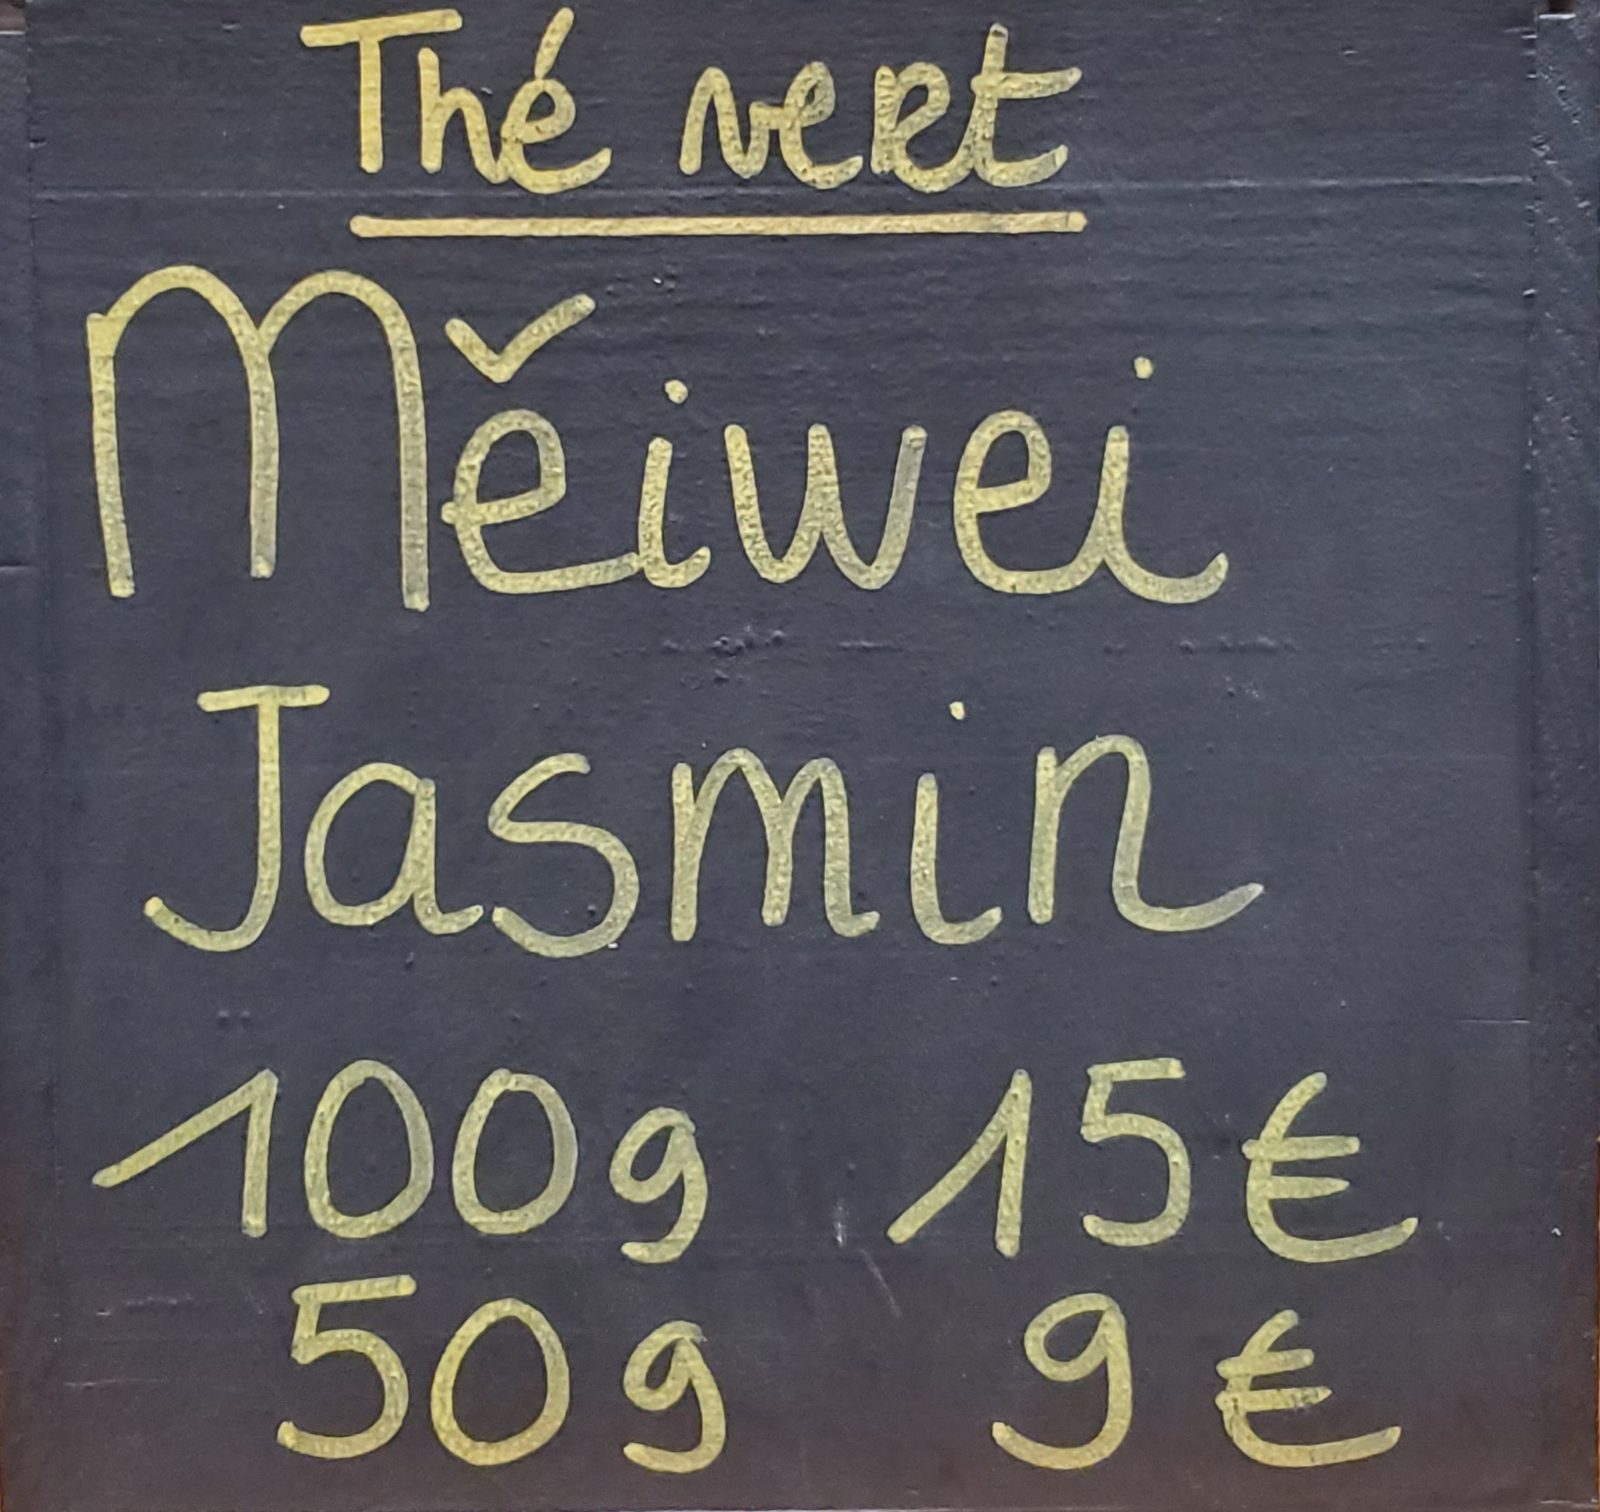 Thé vert
Měiwei
Jasmin
100g 15€
50g 9€